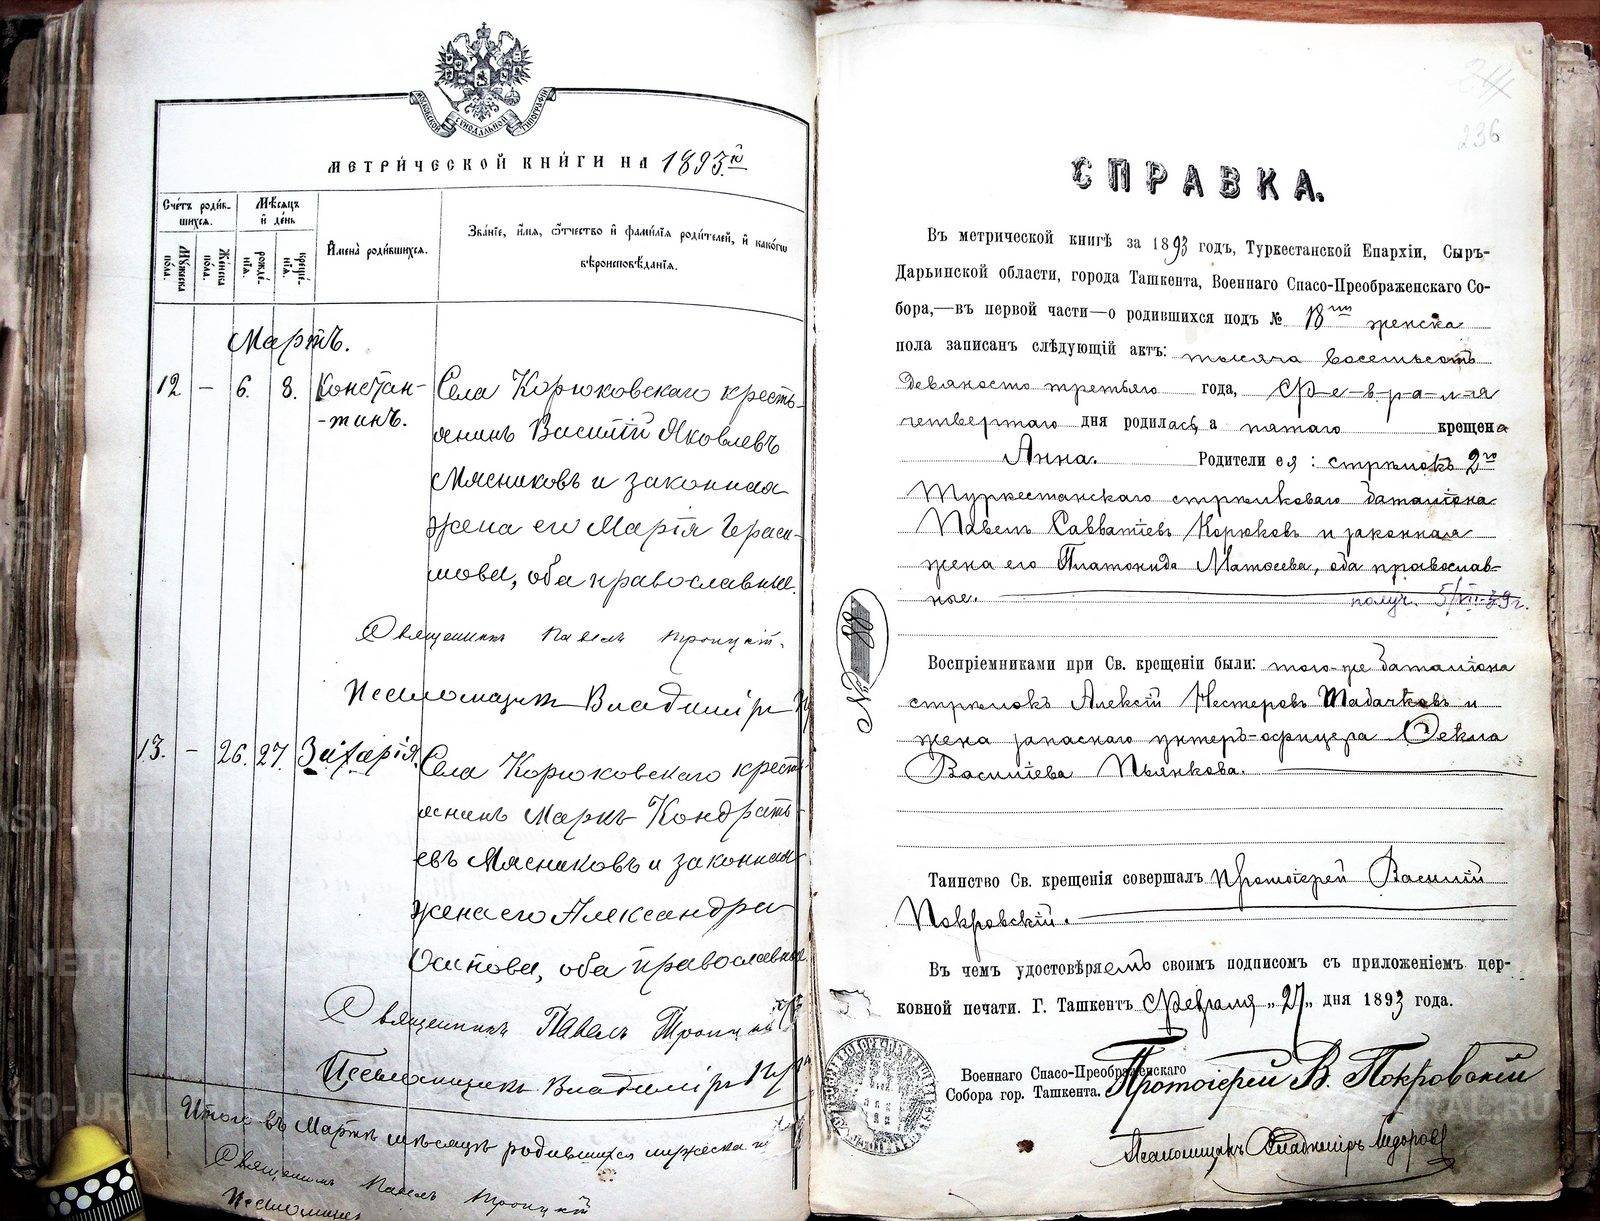 МОСКОВСКОЙ СѴНОДАЛЬНОЙ ТИПОГРАФІИ
МЕТРИ́ЧЕСКОЙ КНИ́ГИ НА 1893.й
Сче́тъ роди́в-
шихся.
Му́жеска по́ла.
Же́нска по́ла.
Мѣ́сяцъ и҆ де́нь
рожде́нїѧ.
креще́нїѧ.
И҆мена̀ роди́вшихся.
Зва́нїе, и҆́мѧ, ѻ҆́тчество и҆ фами́лїѧ роди́телей, и҆ како́гѡ
вѣроисповѣ́данїѧ.
Мартъ.
12 – 6. 8. Констан-
-тинъ.
Села Корюковскаго кресть-
янинъ Василій Яковлевъ
Мясниковъ и законная
жена его Марія Гераси-
мова, оба православные.
Священникъ Павелъ Троицкій.
Псаломщикъ Владиміръ
13. – 26. 27. Захарія.
Села Корюковскаго кресть-
янинъ Маркъ Кондрать-
евъ Мясниковъ и законная
жена его Александра
Осипова, оба православные.
Священникъ Павелъ Троицкій
Псаломщикъ Владиміръ
Итого въ Мартѣ мѣсяцѣ родившихся мужеска
Священникъ Павелъ Троицкій
Псаломщикъ
236
СПРАВКА.
Въ метрической книгѣ за 1893 годъ, Туркестанской Епархіи, Сыръ-
Дарьинской области, города Ташкента, Военнаго Спасо-Преображенскаго Со-
бора,—въ первой части—о родившихся подъ № 18мъ женска
пола записанъ слѣдующій актъ: тысяча восемьсотъ
девяносто третьяго года, Ф-е-в-р-а-л-я
четвертаго дня родилась, а пятаго крещена
Анна. Родители ея: стрѣлокъ 2го
Туркестанскаго стрѣлковаго баталіона
Павелъ Савватіевъ Корюковъ и законная
жена его Платонида Матѳеева, оба православ-
ные. получ. 5/VII-39г.
№ 88
Воспріемниками при Св. крещеніи были: того-же баталіона
стрѣлокъ Алексѣй Нестеровъ Табачковъ и
жена запаснаго унтеръ-офицера Ѳекла
Васильева Пьянкова.
Таинство Св. крещенія совершалъ Протоіерей Василій
Покровскій.
Въ чемъ удостовѣряемъ своимъ подписомъ съ приложеніемъ цер-
ковной печати. Г. Ташкентъ Февраля „27„ дня 1893 года.
Военнаго Спасо-Преображенскаго
Собора гор. Ташкента. Протоіерей В. Покровскій
Псаломщикъ Владиміръ Сидоровъ